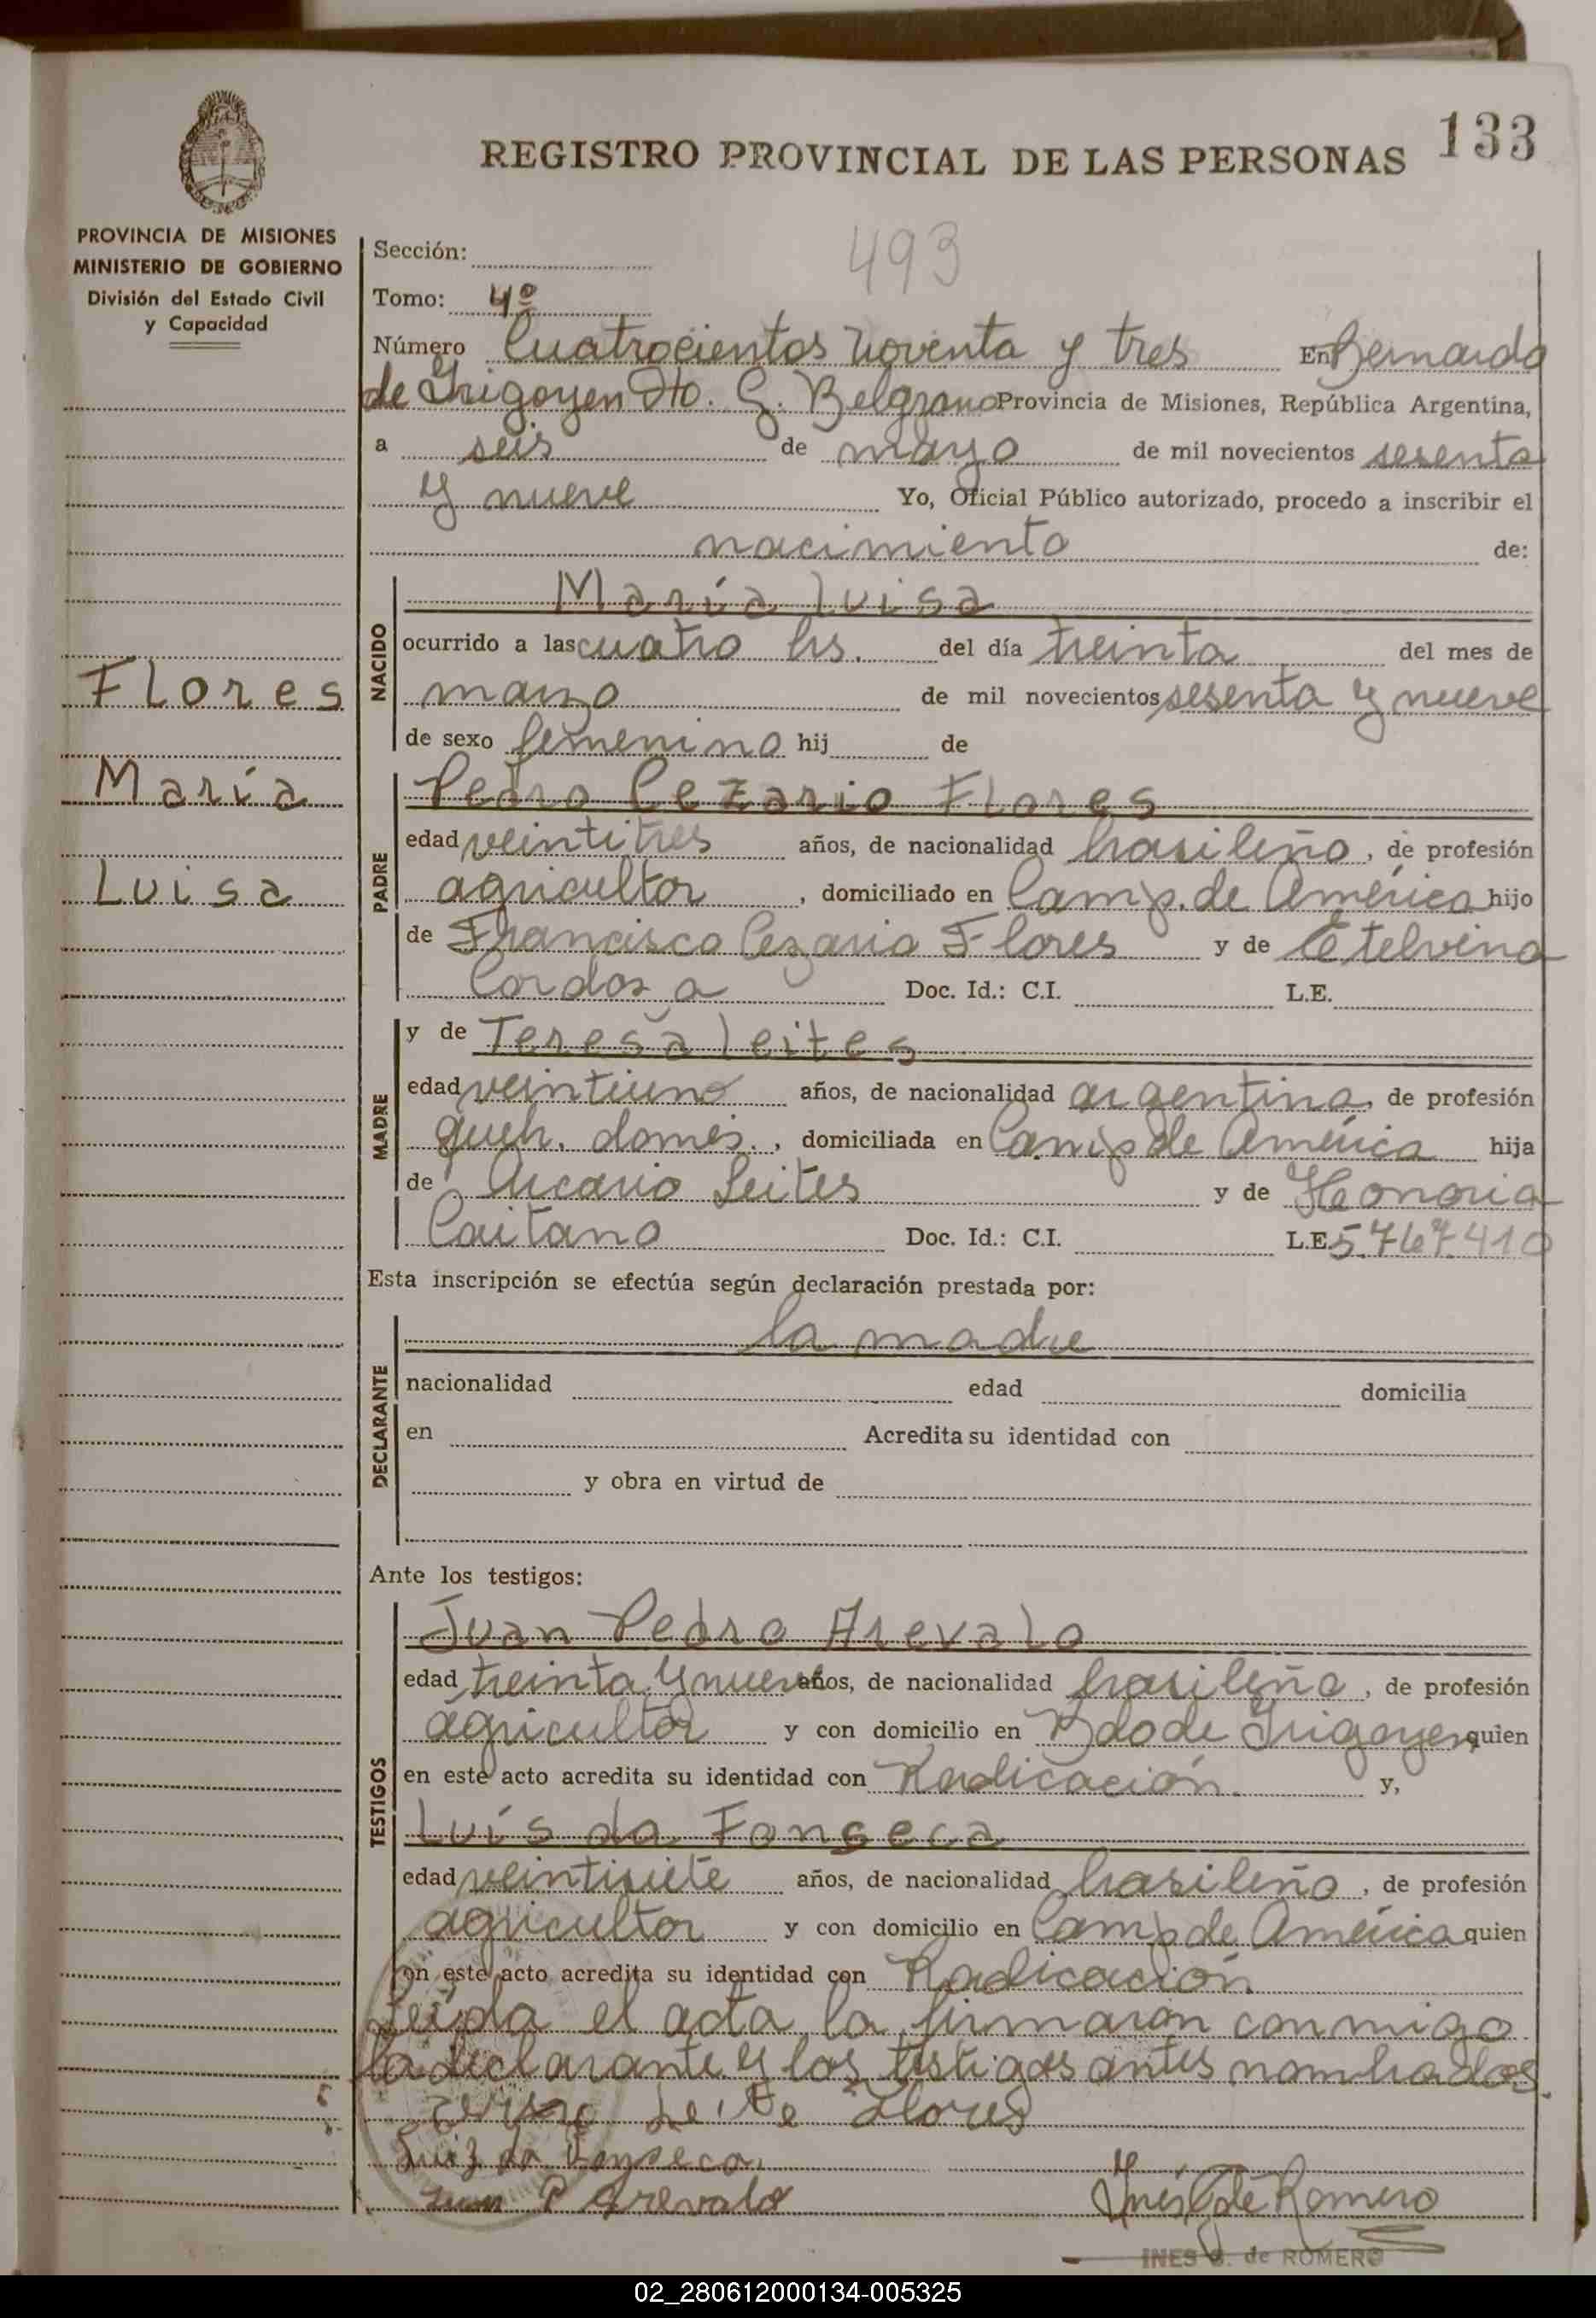 133
REGISTRO PROVINCIAL DE LAS PERSONAS
PROVINCIA DE MISIONES
MINISTERIO DE GOBIERNO
División del Estado Civil
y Capacidad
493
Sección:
Tomo: 4º
Número Cuatrocientos noventa y tres En Bernardo
de Irigoyen Dto. G. Belgrano Provincia de Misiones, República Argentina,
a seis de mayo de mil novecientos sesenta
y nueve Yo, Oficial Público autorizado, procedo a inscribir el
nacimiento de:
Flores
María
Luisa
NACIDO
María Luisa
ocurrido a las cuatro hs. del día treinta del mes de
marzo de mil novecientos sesenta y nueve
de sexo femenino hij de
PADRE
Pedro Cezario Flores
edad veintitres años, de nacionalidad brasileño, de profesión
agricultor, domiciliado en Camp. de América hijo
de Francisco Cezario Flores y de Etelvina
Cordoza Doc. Id.: C.I. L.E.
MADRE
y de Teresa Leites
edad veintiuno años, de nacionalidad argentina, de profesión
queh. domés., domiciliada en Camp de América hija
de Arcario Leites y de Honoria
Caitano Doc. Id.: C.I. L.E. 5.767.410
Esta inscripción se efectúa según declaración prestada por:
DECLARANTE
la madre
nacionalidad edad domicilia
en Acredita su identidad con
y obra en virtud de
Ante los testigos:
TESTIGOS
Juan Pedro Arevalo
edad treinta y nueve años, de nacionalidad brasileño, de profesión
agricultor y con domicilio en Bdo de Irigoyen quien
en este acto acredita su identidad con Radicación. y,
Luís da Fonseca
edad veintisiete años, de nacionalidad brasileño, de profesión
agricultor y con domicilio en Camp de América quien
en este acto acredita su identidad con Radicación
Leída el acta la firmaron conmigo
la declarante y los testigos antes nombrados.
Leite Flores
Luiz da Fonseca
Juan P Arevalo
Inés G de Romero
INES G. de ROMERO
02_280612000134-005325